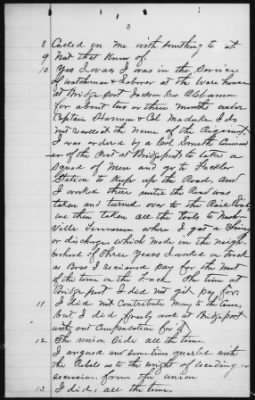 3
8 Called on me with something to eat
9 Not that I know of.
10 Yes I was I was in the Service
of watchman & Laborer at the Ware house
at Bridgeport Jackson Co Alabama
for about two or three months under
Captain Harmon & Col I do
not recollect the name of the Regiment
I was ordered by a Col Smith
of the Post at Bridgeport to take a
Squad of Men and go to
Station to the Road, and
I worked there until the Road was
taken and turned over to the
we then taken all the Tools to Nash-
ville Tennessee where I got a
or discharge which made in the neigh-
borhood of three years I worked on Track
as Boss I received pay for the most
of the time on the Track. The time at
Bridgeport I did not get pay for
11 I did not Contribute Money to the Union,
but I did freely work at Bridgeport
with out Compensation for it
12 The union Side all the time.
I argued and sometime quareled with
the Rebels as to the wright of seceeding or
secession from the union
13 I did, all the time